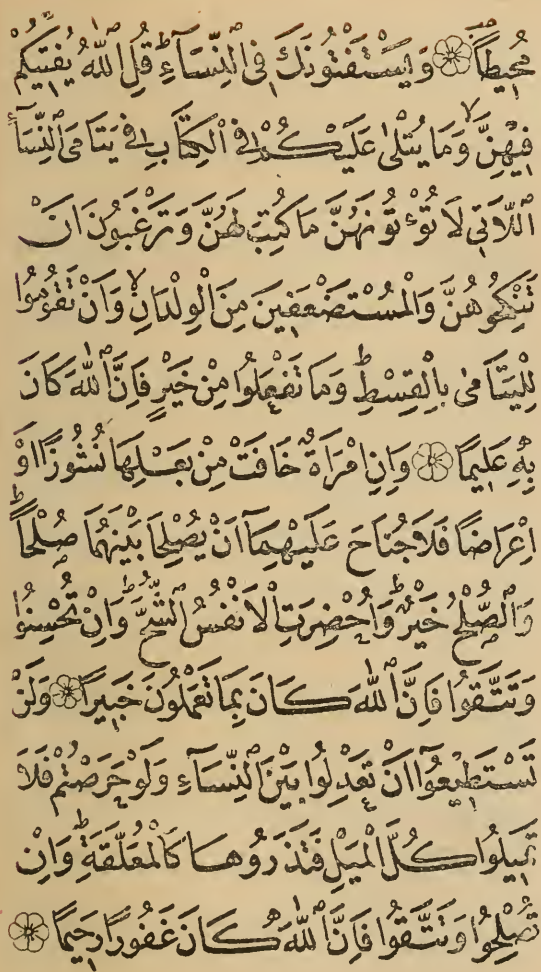 مُحِيطًا ۝ وَيَسْتَفْتُونَكَ فِي النِّسَآءِ ۖ قُلِ اللّٰهُ يُفْتِيكُمْ
فِيهِنَّ ۙ وَمَا يُتْلٰى عَلَيْكُمْ فِي الْكِتَابِ فِي يَتَامَى النِّسَآءِ
اللَّاتِي لَا تُؤْتُونَهُنَّ مَا كُتِبَ لَهُنَّ وَتَرْغَبُونَ اَنْ
تَنْكِحُوهُنَّ وَالْمُسْتَضْعَفِينَ مِنَ الْوِلْدَانِ ۙ وَاَنْ تَقُومُوا
لِلْيَتَامٰى بِالْقِسْطِ ۗ وَمَا تَفْعَلُوا مِنْ خَيْرٍ فَاِنَّ اللّٰهَ كَانَ
بِهِ عَلِيمًا ۝ وَاِنِ امْرَاَةٌ خَافَتْ مِنْ بَعْلِهَا نُشُوزًا اَوْ
اِعْرَاضًا فَلَا جُنَاحَ عَلَيْهِمَآ اَنْ يُصْلِحَا بَيْنَهُمَا صُلْحًا ۗ
وَالصُّلْحُ خَيْرٌ ۗ وَاُحْضِرَتِ الْاَنْفُسُ الشُّحَّ ۗ وَاِنْ تُحْسِنُوا
وَتَتَّقُوا فَاِنَّ اللّٰهَ كَانَ بِمَا تَعْمَلُونَ خَبِيرًا ۝ وَلَنْ
تَسْتَطِيعُوٓا اَنْ تَعْدِلُوا بَيْنَ النِّسَآءِ وَلَوْ حَرَصْتُمْ فَلَا
تَمِيلُوا كُلَّ الْمَيْلِ فَتَذَرُوهَا كَالْمُعَلَّقَةِ ۗ وَاِنْ
تُصْلِحُوا وَتَتَّقُوا فَاِنَّ اللّٰهَ كَانَ غَفُورًا رَحِيمًا ۝